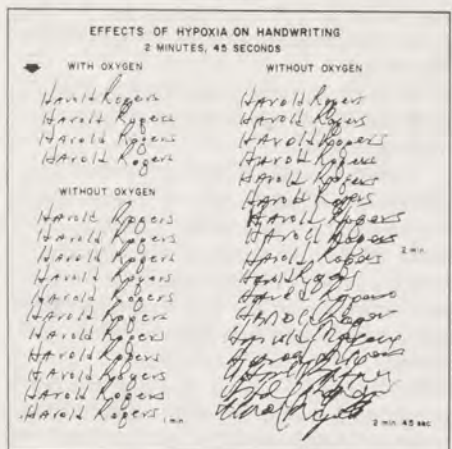 EFFECTS OF HYPOXIA ON HANDWRITING
2 MINUTES, 45 SECONDS
WITH OXYGEN
Harold Rogers
Harold Rogers
Harold Rogers
Harold Rogers
WITHOUT OXYGEN
Harold Rogers
Harold Rogers
Harold Rogers
Harold Rogers
Harold Rogers
Harold Rogers
Harold Rogers
Harold Rogers
Harold Rogers
Harold Rogers
Harold Rogers 1 min.
WITHOUT OXYGEN
Harold Rogers
Harold Rogers
Harold Rogers
Harold Rogers
Harold Rogers
Harold Rogers
Harold Rogers
Harold Rogers
2 min.
Harold Rogers
Harold Rogers
Harold
Harold
Harold
2 min. 45 sec